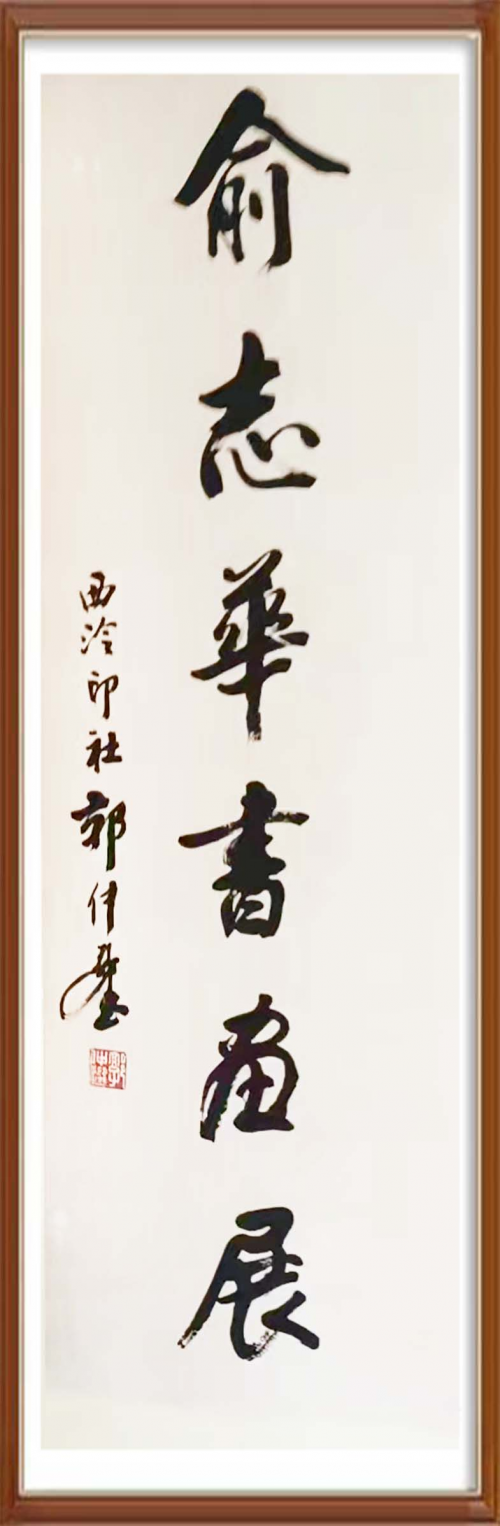 俞志華書畫展
西泠印社郭仲選